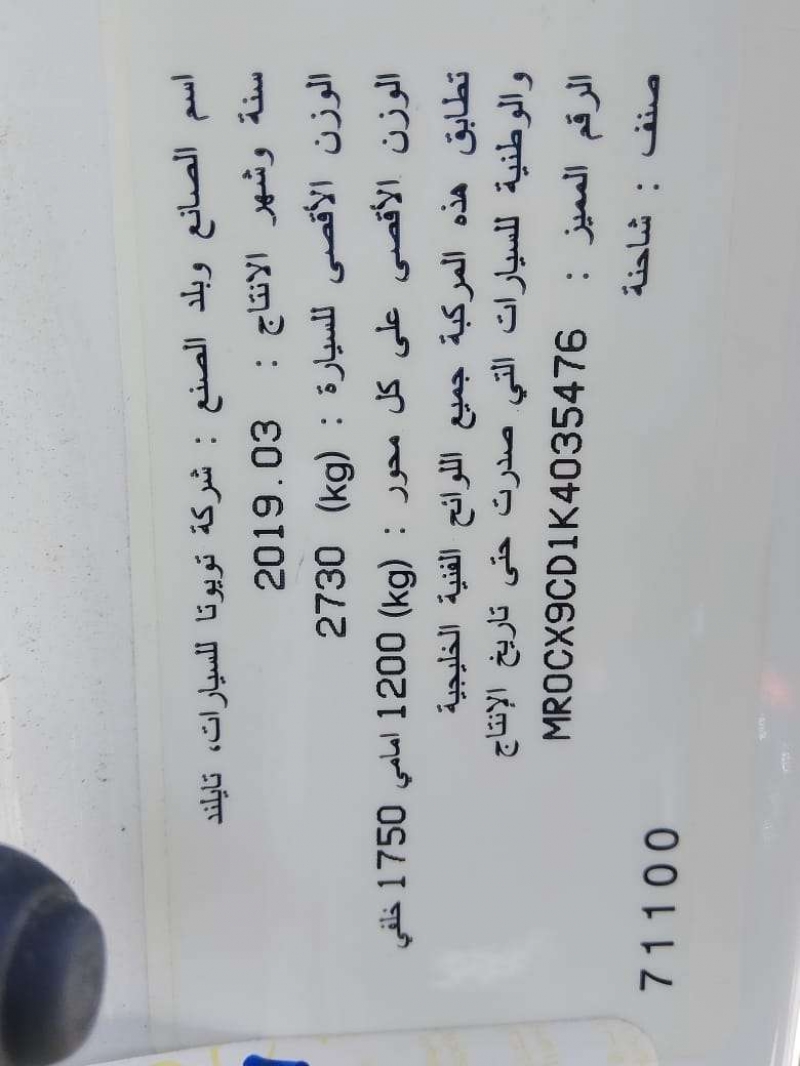 اسم الصانع وبلد الصنع : شركة تويوتا للسيارات، تايلند
سنة وشهر الانتاج : 2019.03
الوزن الأقصى للسيارة : (kg) 2730
الوزن الأقصى على كل محور : (kg) 1200 امامي 1750 خلفي
تطابق هذه المركبة جميع اللوائح الفنية الخليجية
والوطنية للسيارات التي صدرت حتى تاريخ الإنتاج
الرقم المميز : MR0CX9CD1K4035476
صنف : شاحنة
71100